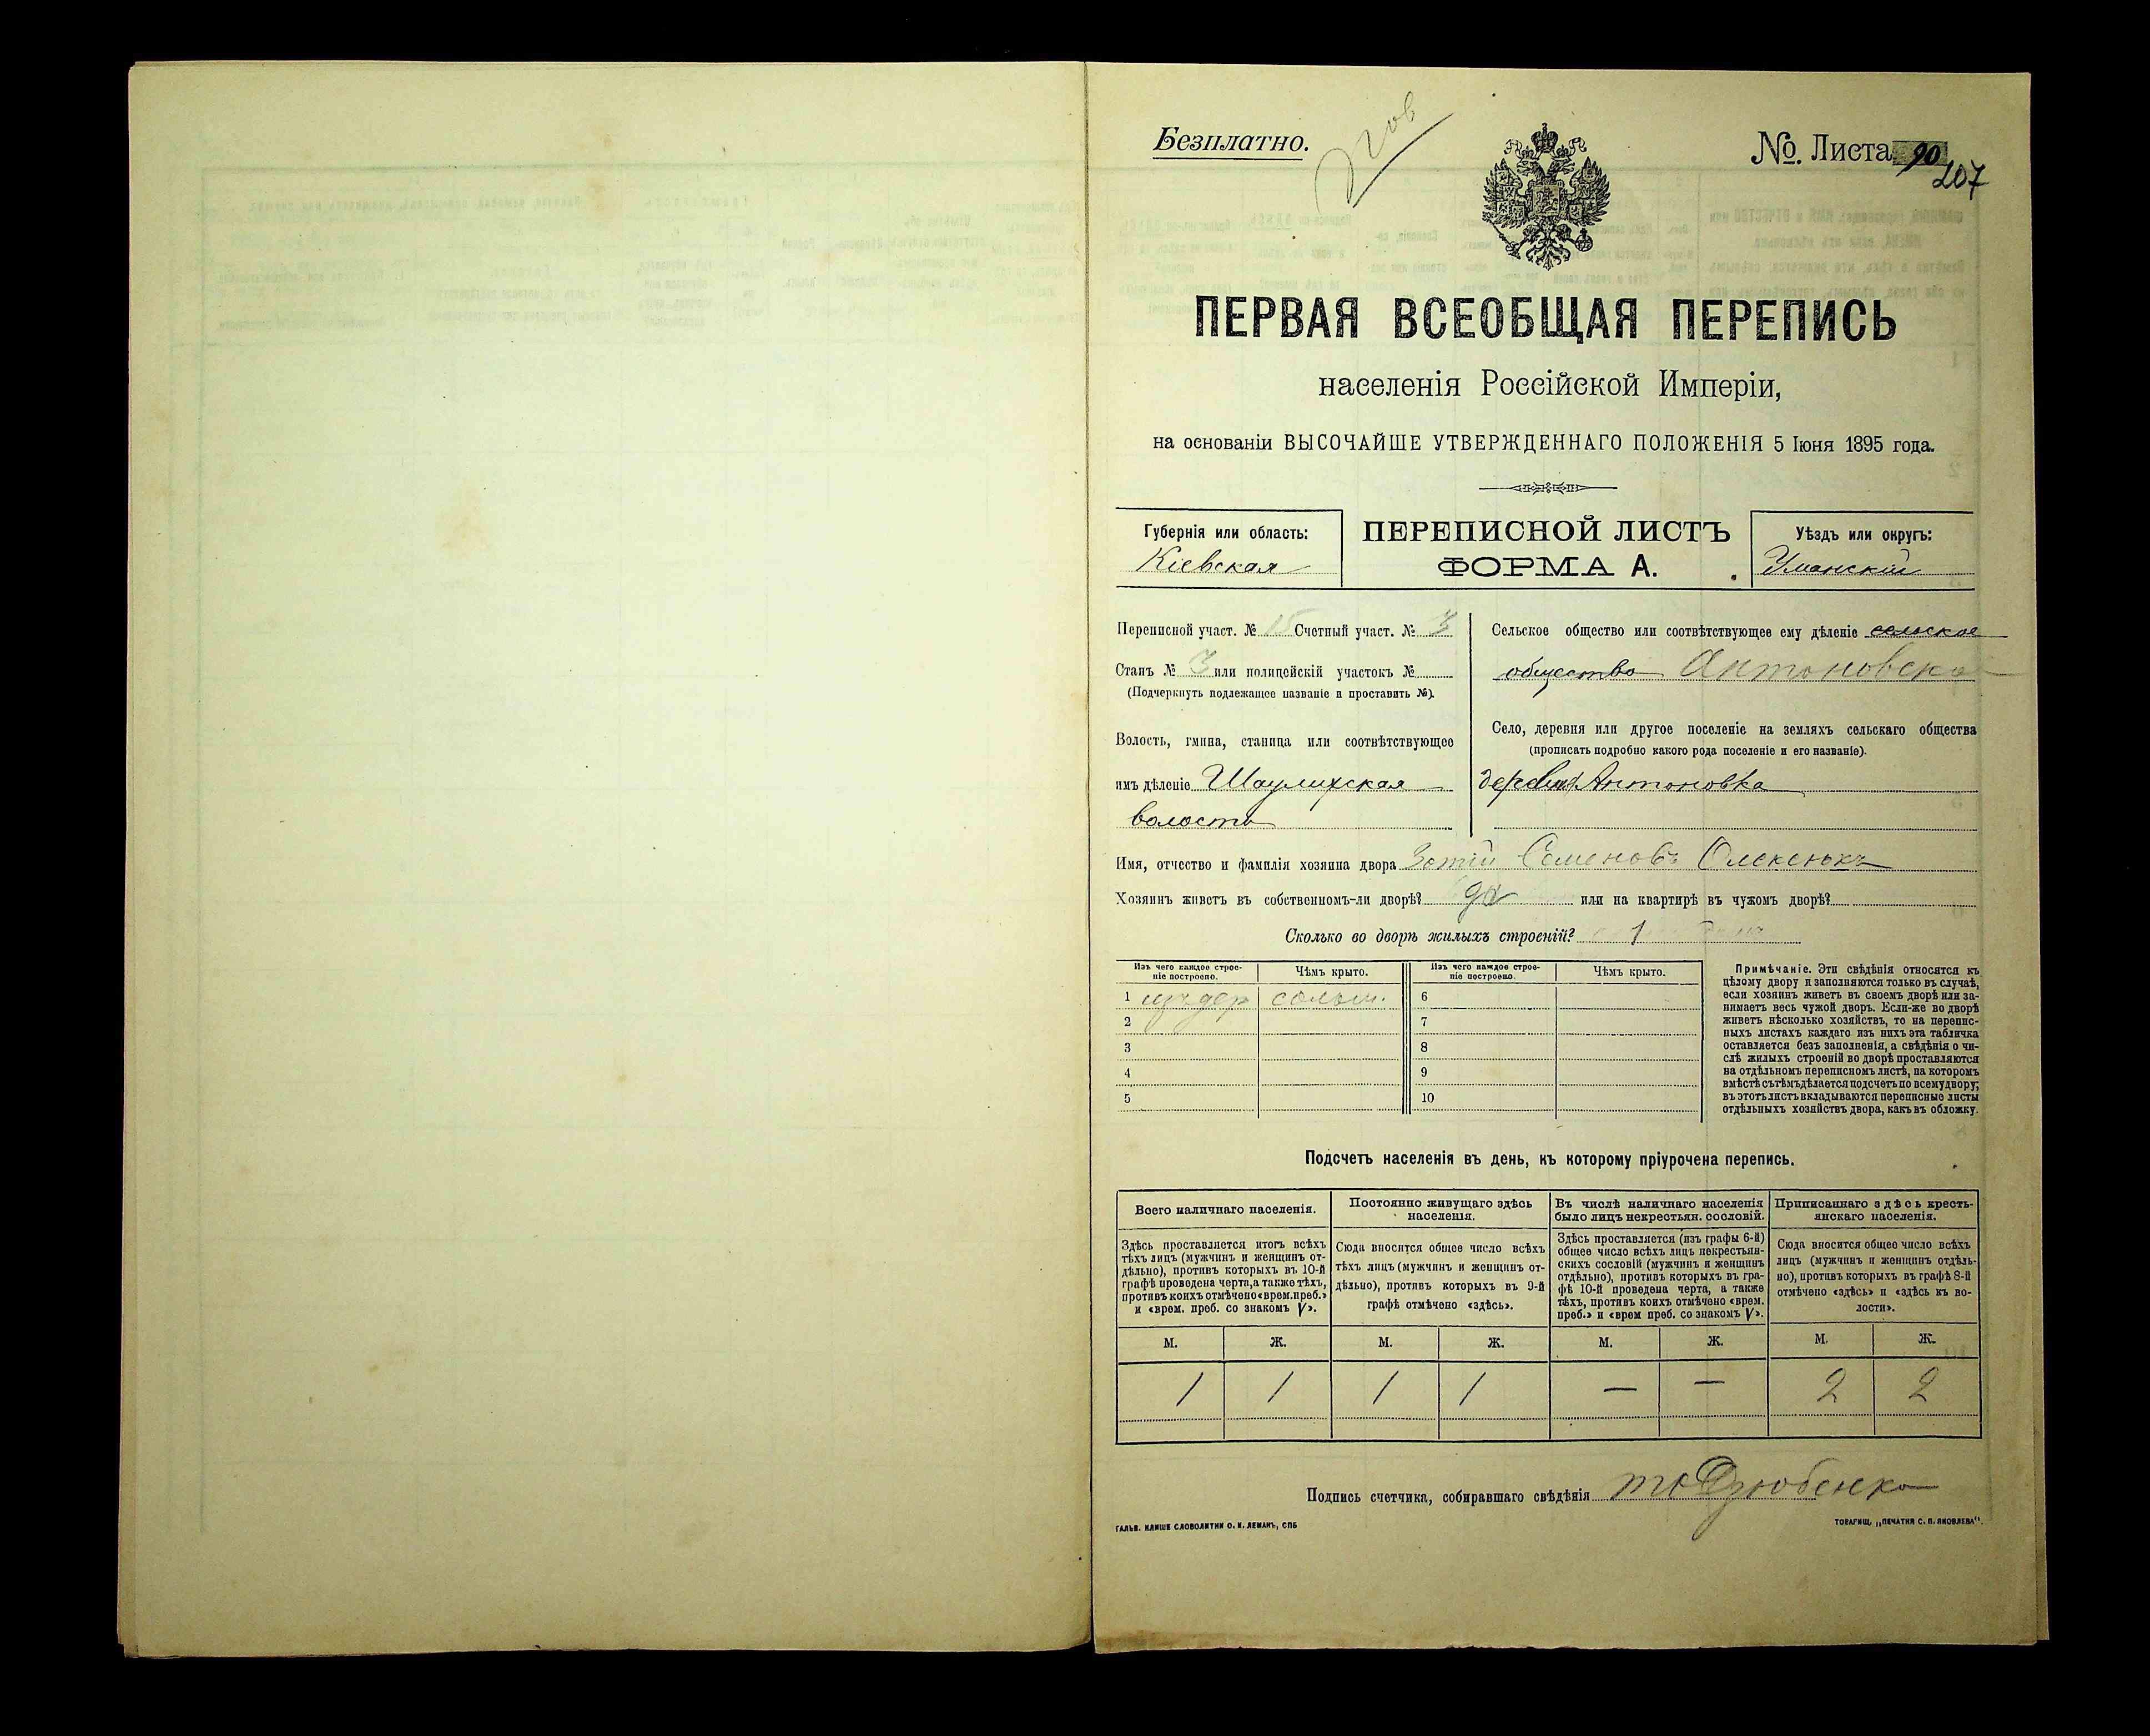 Безплатно.
№. Листа 90
207
ПЕРВАЯ ВСЕОБЩАЯ ПЕРЕПИСЬ
населенія Россійской Имперіи,
на основаніи ВЫСОЧАЙШЕ УТВЕРЖДЕННАГО ПОЛОЖЕНІЯ 5 Іюня 1895 года.
Губернія или область:
Кіевская
ПЕРЕПИСНОЙ ЛИСТЪ
ФОРМА А.
Уѣздъ или округъ:
Уманскій
Переписной участ. № 15 Счетный участ. № 3
Станъ № 3 или полицейскій участокъ №
(Подчеркнуть подлежащее названіе и проставить №).
Волость, гмина, станица или соотвѣтствующее
имъ дѣленіе Шаулихская
волость
Сельское общество или соотвѣтствующее ему дѣленіе сельское
общество Антоновско
Село, деревня или другое поселеніе на земляхъ сельскаго общества
(прописать подробно какого рода поселеніе и его названіе).
деревня Антоновка
Имя, отчество и фамилія хозяина двора Семеновъ
Хозяинъ живетъ въ собственномъ-ли дворѣ? да или на квартирѣ въ чужомъ дворѣ?
Сколько во дворѣ жилыхъ строеній? 1
Изъ чего каждое строе-
ніе построено.
Чѣмъ крыто.
Изъ чего каждое строе-
ніе построено.
Чѣмъ крыто.
1 изъ дер солом.
2
3
4
5
6
7
8
9
10
Примѣчаніе. Эти свѣдѣнія относятся къ
цѣлому двору и заполняются только въ случаѣ,
если хозяинъ живетъ въ своемъ дворѣ или за-
нимаетъ весь чужой дворъ. Если-же во дворѣ
живетъ нѣсколько хозяйствъ, то на перепис-
ныхъ листахъ каждаго изъ нихъ эта табличка
оставляется безъ заполненія, а свѣдѣнія о чи-
слѣ жилыхъ строеній во дворѣ проставляются
на отдѣльномъ переписномъ листѣ, на которомъ
вмѣстѣ съ тѣмъ дѣлается подсчетъ по всему двору;
въ этотъ листъ вкладываются переписные листы
отдѣльныхъ хозяйствъ двора, какъ въ обложку.
Подсчетъ населенія въ день, къ которому пріурочена перепись.
Всего наличнаго населенія.
Здѣсь проставляется итогъ всѣхъ
тѣхъ лицъ (мужчинъ и женщинъ от-
дѣльно), противъ которыхъ въ 10-й
графѣ проведена черта, а также тѣхъ,
противъ коихъ отмѣчено «врем. преб.»
и «врем. преб. со знакомъ V».
Постоянно живущаго здѣсь
населенія.
Сюда вносится общее число всѣхъ
тѣхъ лицъ (мужчинъ и женщинъ от-
дѣльно), противъ которыхъ въ 9-й
графѣ отмѣчено «здѣсь».
Въ числѣ наличнаго населенія
было лицъ некрестьян. сословій.
Здѣсь проставляется (изъ графы 6-й)
общее число всѣхъ лицъ некрестьян-
скихъ сословій (мужчинъ и женщинъ
отдѣльно), противъ которыхъ въ гра-
фѣ 10-й проведена черта, а также
тѣхъ, противъ коихъ отмѣчено «врем.
преб.» и «врем преб. со знакомъ V».
Приписаннаго здѣсь кресть-
янскаго населенія.
Сюда вносится общее число всѣхъ
лицъ (мужчинъ и женщинъ отдѣль-
но), противъ которыхъ въ графѣ 8-й
отмѣчено «здѣсь» и «здѣсь къ во-
лости».
М. Ж. М. Ж. М. Ж. М. Ж.
1 1 1 1 — — 2 2
Подпись счетчика, собиравшаго свѣдѣнія Дзюбенко
ГАЛЬВ. КЛИШЕ СЛОВОЛИТНИ О. И. ЛЕМАНЪ, СПБ
ТОВАРИЩ. „ПЕЧАТНЯ С. П. ЯКОВЛЕВА".